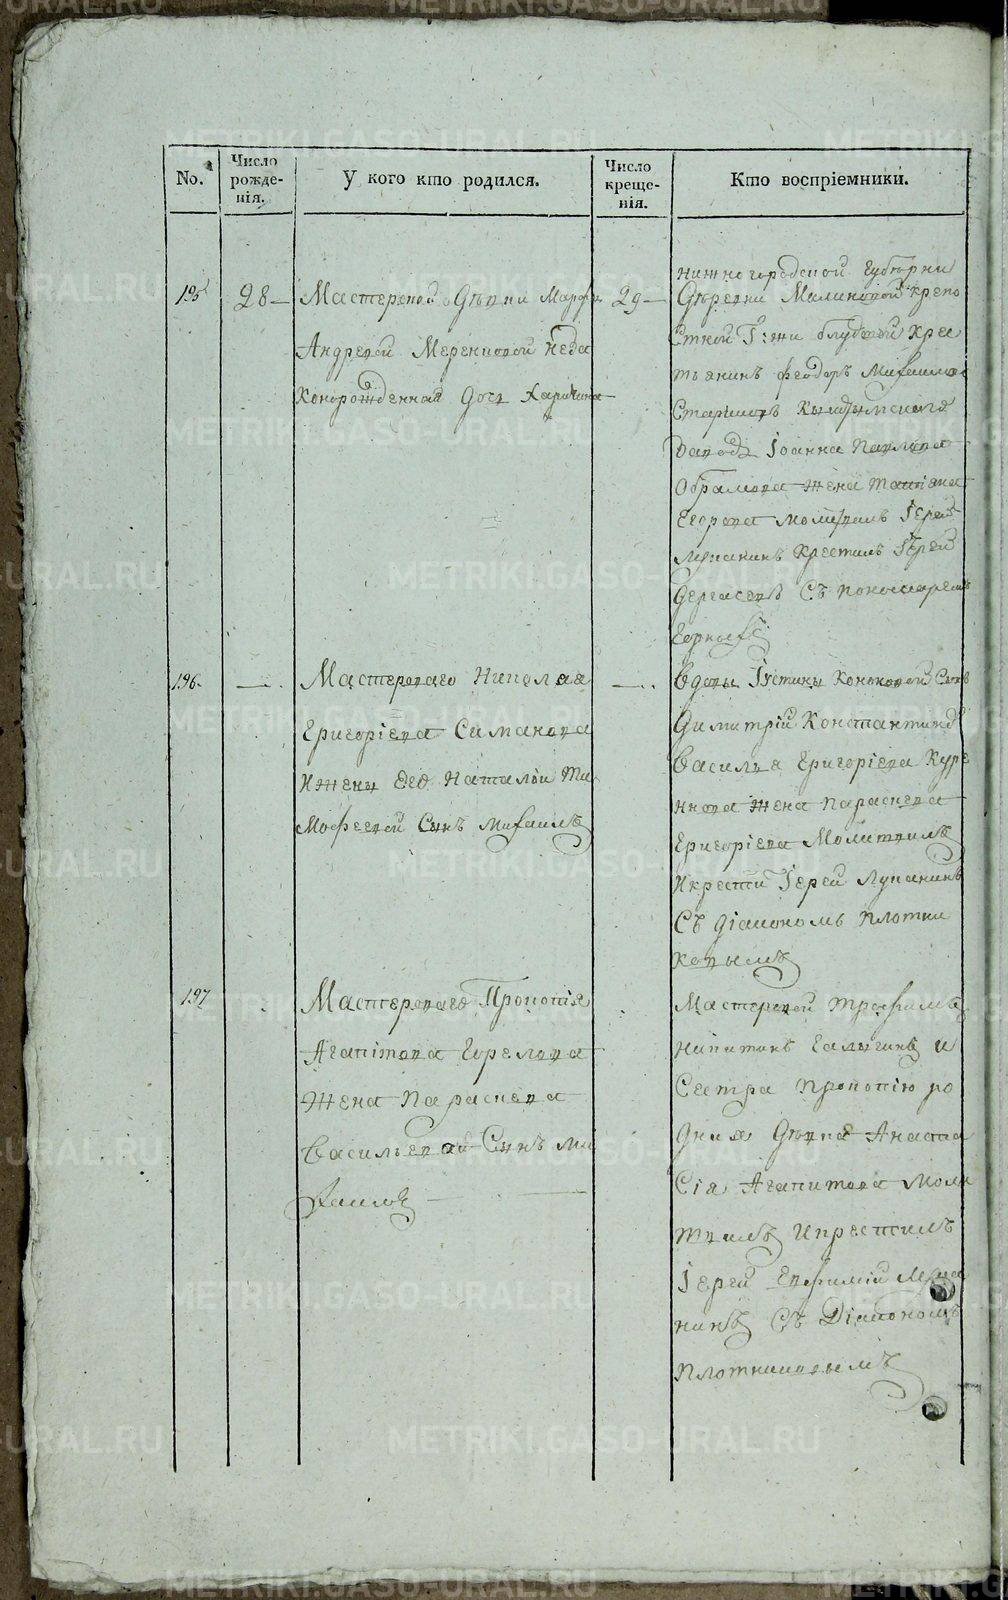 No.
Число рожде-нія.
У кого кто родился.
Число креще-нія.
Кто воспріемники.
195
28
Мастерской Дѣвки Марфы
Андреевой Меренцовой неза
конорожденная дочь Харитина
29
нижегородской Губерни
Деревни Малиновой крепо
стной Г:жи Глубовой крес
тьянинъ феодоръ Михаиловъ
Іоанна Павлова
Абрамова жена татіана
Егорова молитвилъ Іерей
Лупанинъ крестилъ Іерей
съ пономаремъ
196.
Мастероваго Николая
Григоріева Симанова
и жены его Наталіи Ти
мофеевой Сынъ Михаилъ
Вдовы Іустины Сынъ
Димитрій Константиновъ
Василья Григоріева Куре
ннова жена параскева
Григоріева Молитвилъ
и крестил Іерей Лупанинъ
съ діакономъ плотни
ковымъ
197
Мастероваго Прокопія
Агапитова Горелова
Жена Параскева
Васильевой Сынъ Ми
хаилъ
Мастеровой трофимъ
никитинъ Галыгинъ и
Сестра прокопію ро
дная Дѣвка Анаста
сія Агапитова Моли
твилъ и крестилъ
Іерей Евфимій Лупа
нинъ съ Діакономъ
плотниковымъ
METRIKI.GASO-URAL.RU